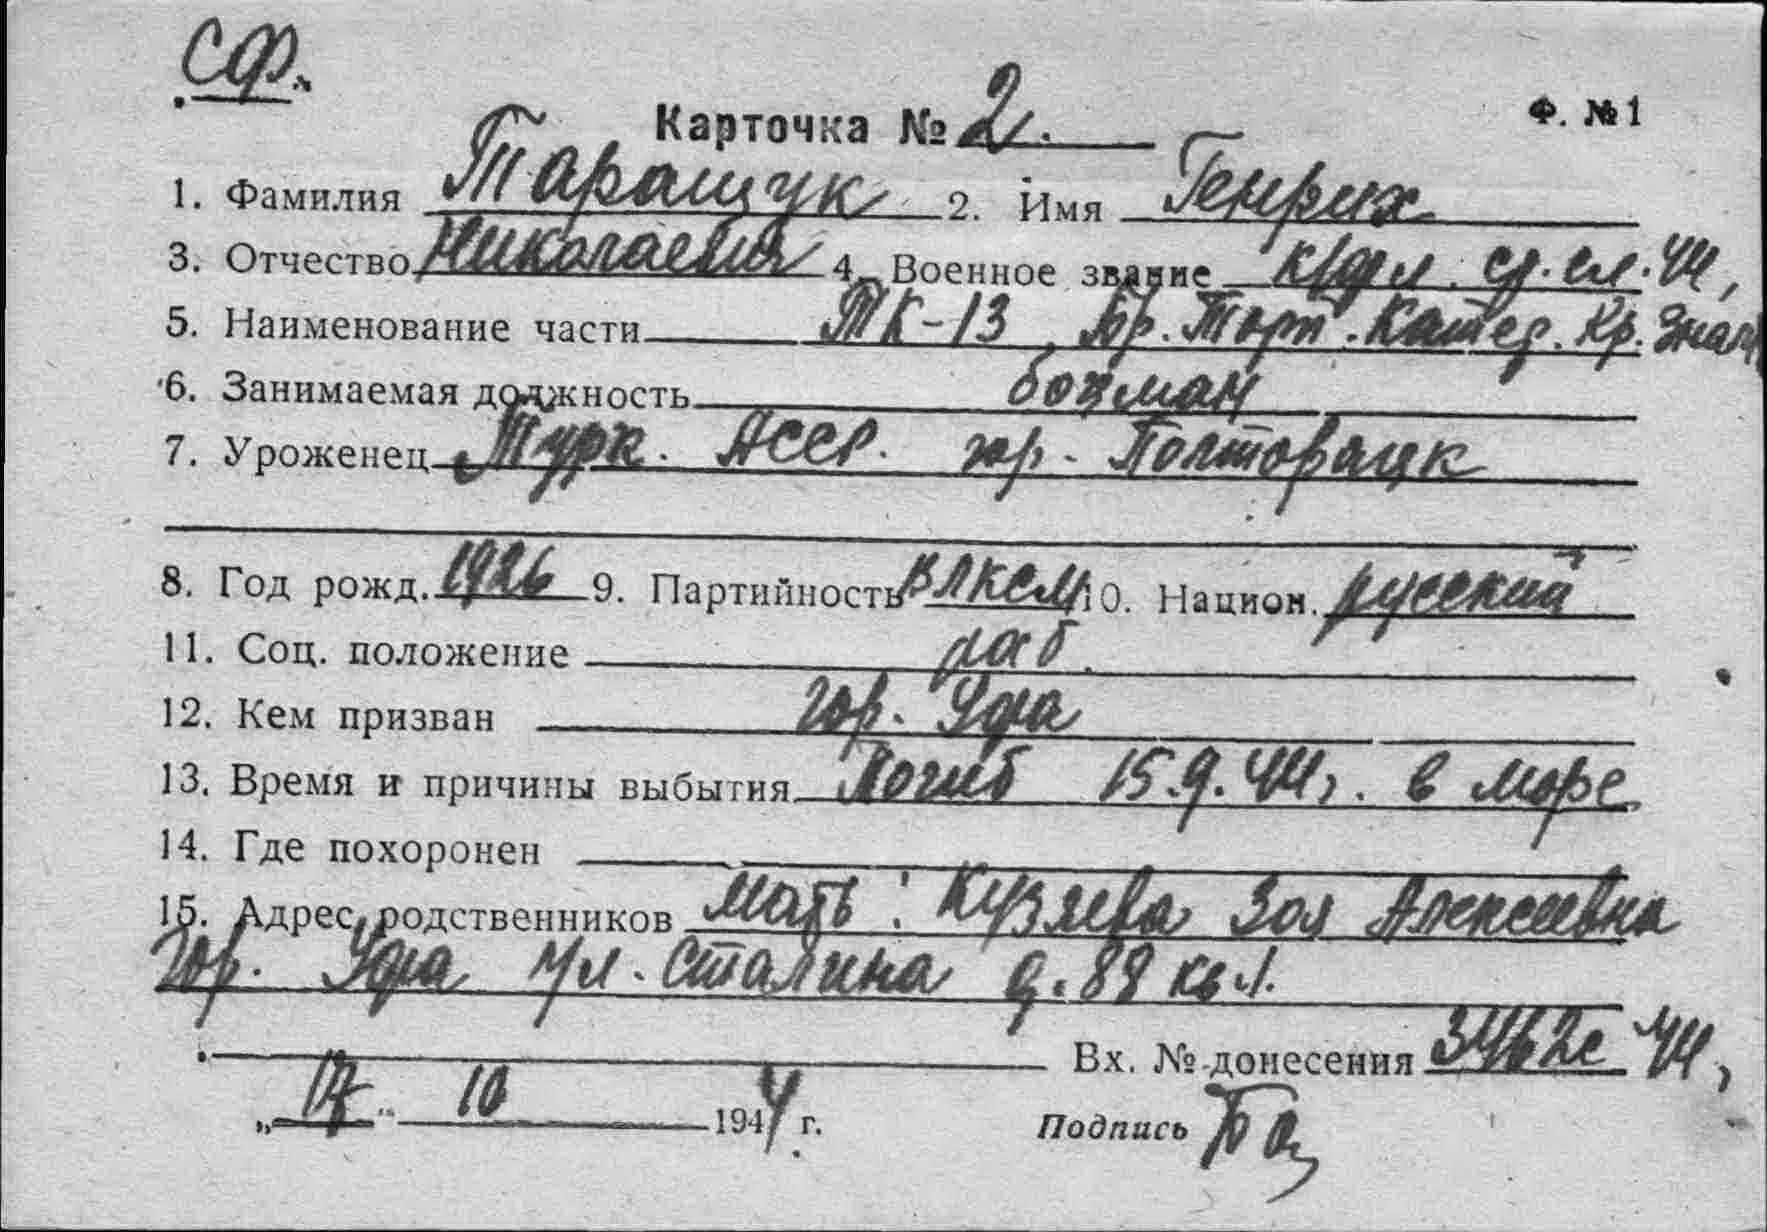 СФ.
Карточка № 2. Ф. №1
1. Фамилия Таращук 2. Имя Генрих
3. Отчество Николаевич 4. Военное звание к/фл. ср. сл. 44,
5. Наименование части ТК-13, Бр. Торп. Катер. Кр. Знам
6. Занимаемая должность боцман
7. Уроженец Турк. АССР. гор. Полторацк
8. Год рожд. 1926 9. Партийность ВЛКСМ 10. Национ. русский
11. Соц. положение раб.
12. Кем призван гор. Уфа
13. Время и причины выбытия Погиб 15.9.44г. в море
14. Где похоронен
15. Адрес родственников мать: Кузяева Зоя Алексеевна
гор. Уфа ул. Сталина д. 88 кв 1.
Вх. № донесения 3462с 44,
„17“ 10 1944 г. Подпись